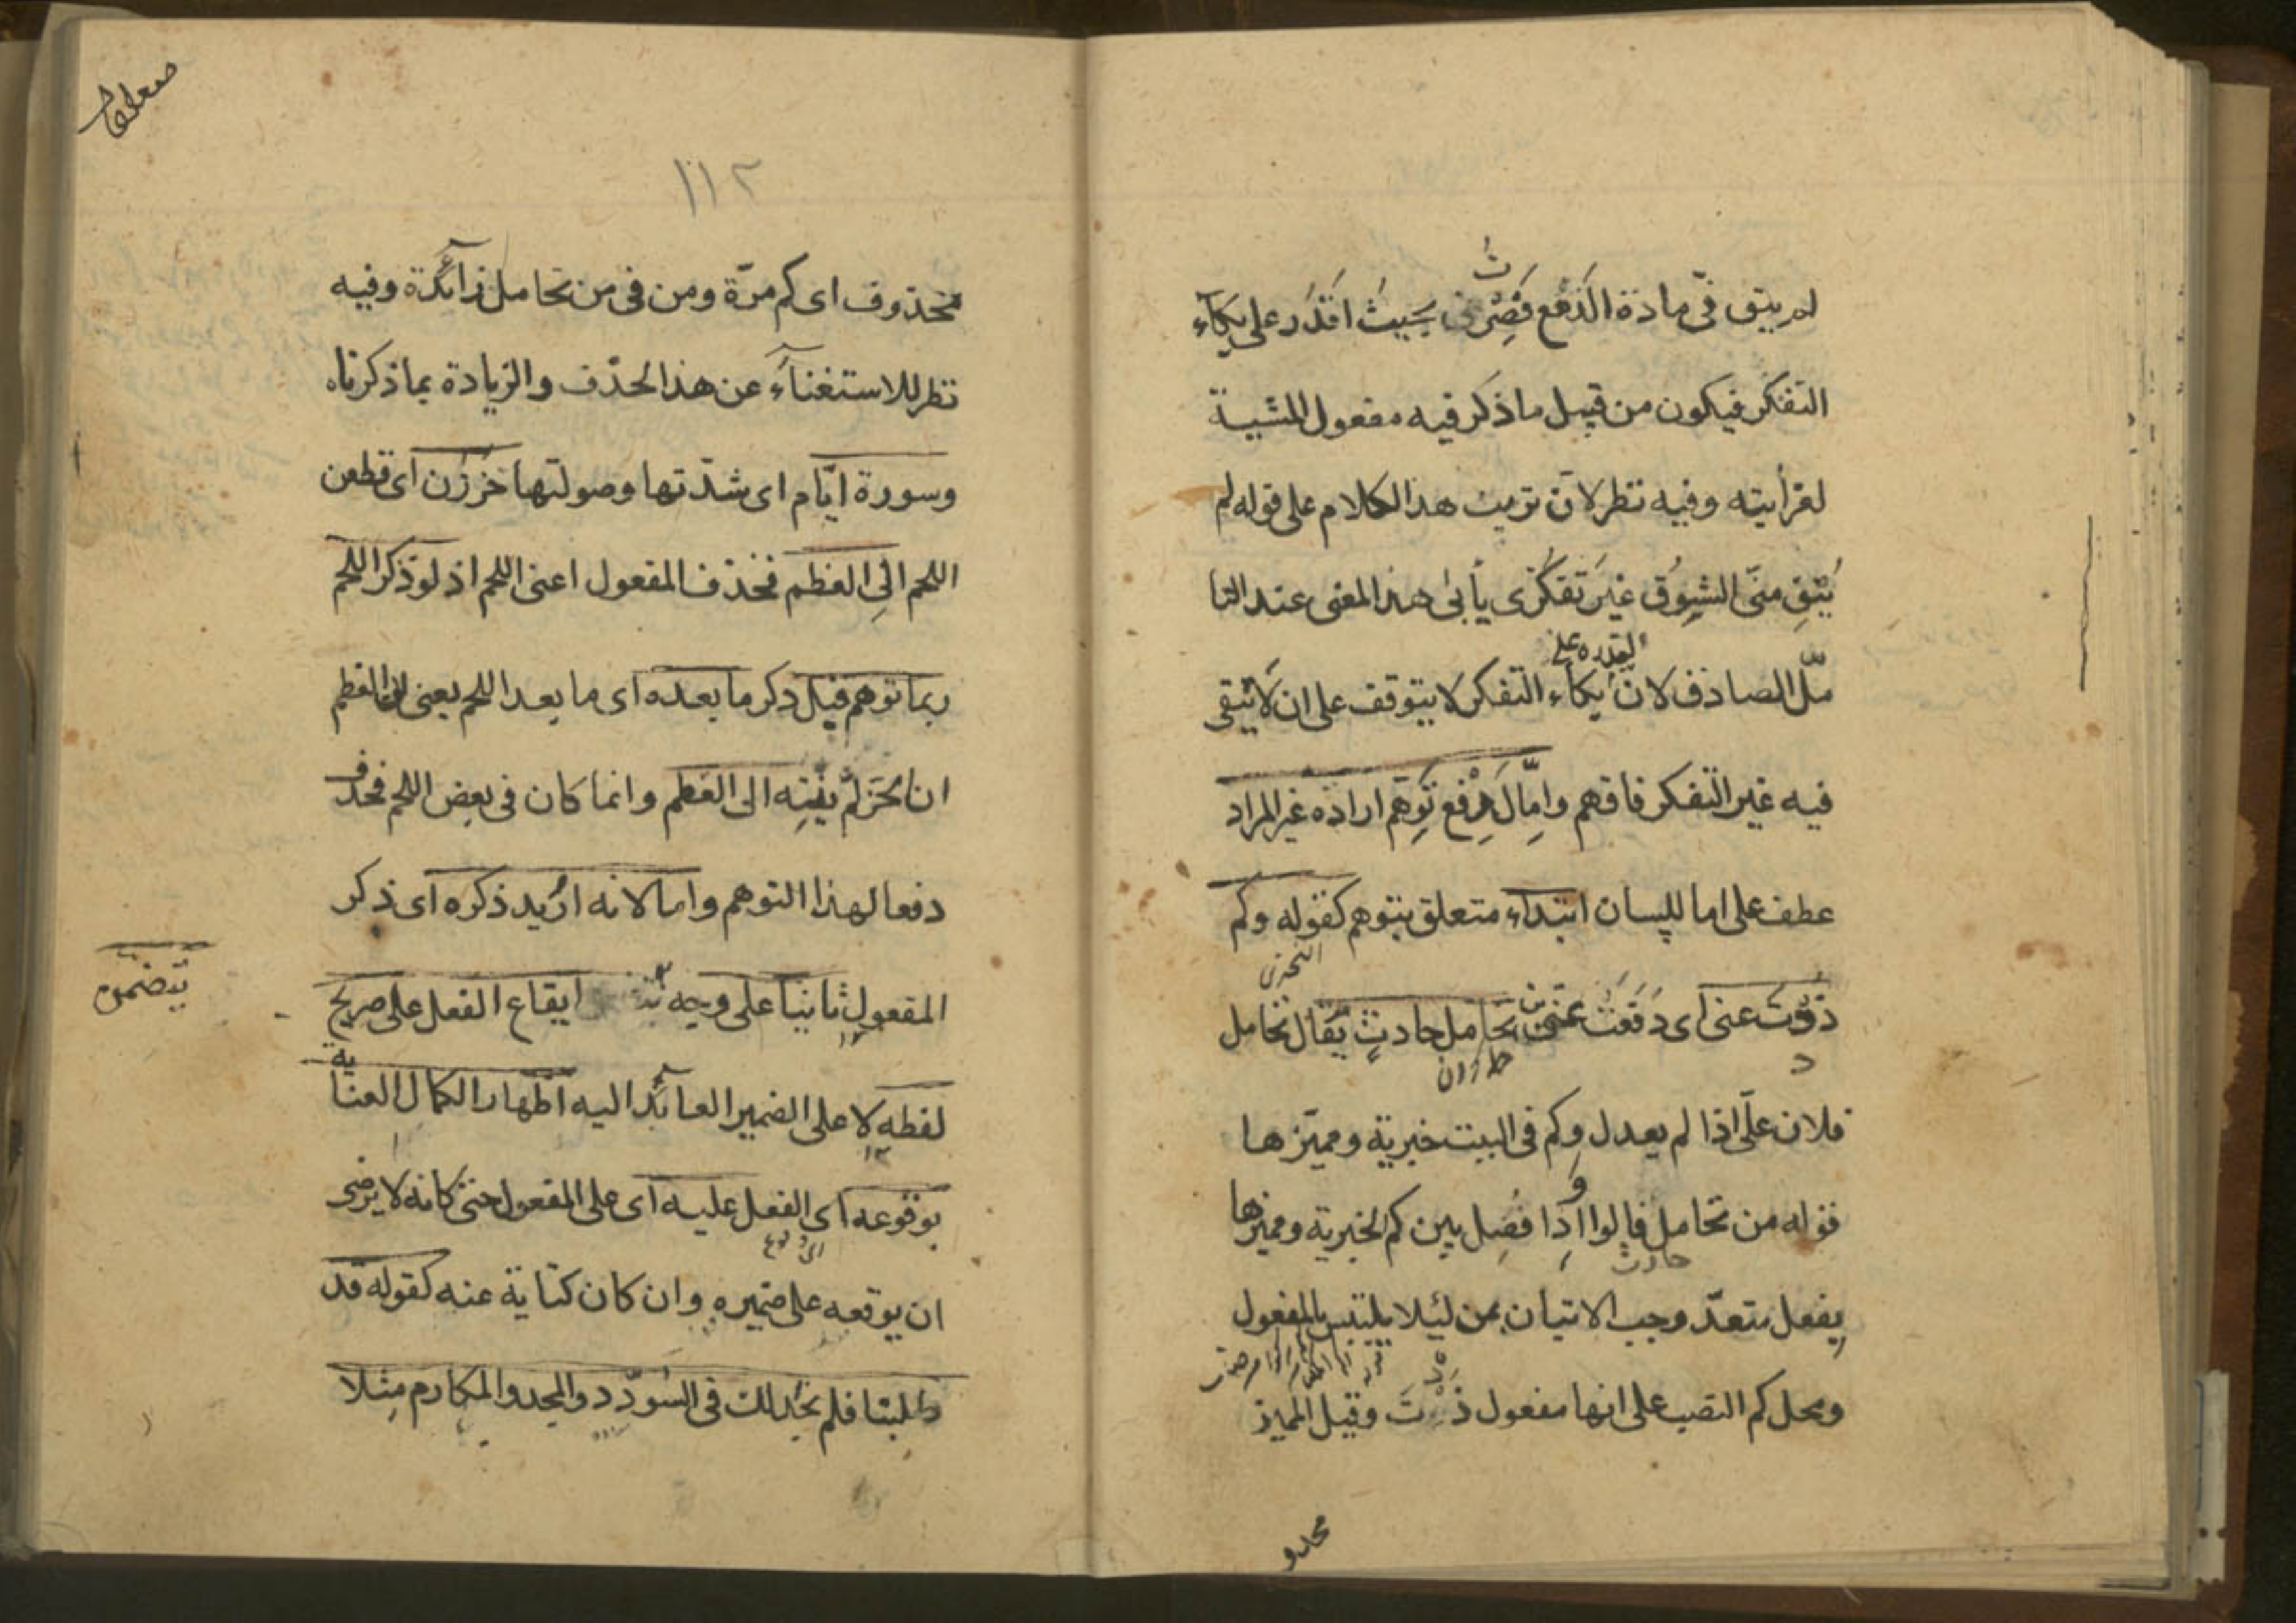 لم يبق فىّ مادة الدمع فصرت بحيث اقدر على بكاء
التفكر فيكون من قبيل ما ذكر فيه مفعول المشية
لغرابته وفيه نظر لان ترتيب هذا الكلام على قوله لم
يُبْقِ منّى الشوق غير تفكرى يأبى هذا المعنى عند التا
مّل الصادق لان بكاء التفكر لا يتوقف على ان لا يبقى
القدرة على
فيه غير التفكر فافهم وامّا لدفع توهم ارادة غير المراد
عطف على اما للبيان ابتداء متعلق بتوهم كقوله وكم
ذدت عنى اى دفعت عنى من تحامل حادث يقال تحامل
فلان علىّ اذا لم يعدل وكم فى البيت خبرية ومميّزها
قوله من تحامل قالوا واذا فصل بين كم الخبرية ومميزها
حادث
بفعل متعدّ وجب الاتيان بمن لئلا يلتبس بالمفعول
ومحل كم النصب على انها مفعول ذدت وقيل المميز
محذو
١١٢
محذوف اى كم مرّة ومن فى من تحامل زائدة وفيه
نظر للاستغناء عن هذا الحذف والزيادة بما ذكرناه
وسورة ايّام اى شدّتها وصولتها حززن اى قطعن
اللحم الى العظم فحذف المفعول اعنى اللحم اذ لو ذكر اللحم
ربما توهم قبل ذكر ما بعده اى ما بعد اللحم يعنى الى العظم
ان الحز لم ينته الى العظم وانما كان فى بعض اللحم فحذف
دفعا لهذا التوهم واما لانه اريد ذكره اى ذكر
المفعول ثانيا على وجه ايقاع الفعل على صريح
يتضمن
لفظه لا على الضمير العائد اليه اظهارا لكمال العناية
بوقوعه اى الفعل عليه اى على المفعول حتى كانه لا يرضى
ان يوقعه على ضميره وان كان كناية عنه كقوله قد
طلبنا فلم نجد لك فى السؤدد والمجد والمكارم مثلا